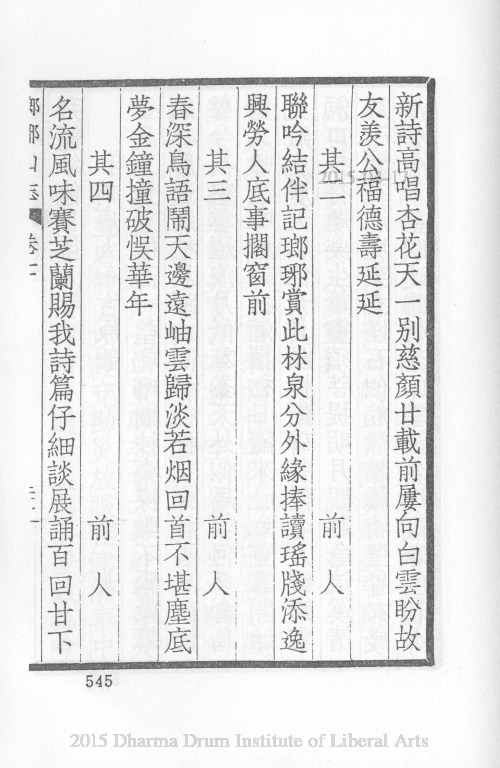 新詩高唱杏花天一别慈顏廿載前屢向白雲盼故
友羨公福德壽延延
其二 前人
聯吟結伴記瑯琊賞此林泉分外緣捧讀瑤牋添逸
興勞人底事擱窗前
其三 前人
春深鳥語鬧天邊遠岫雲歸淡若烟回首不堪塵底
夢金鐘撞破悞華年
其四 前人
名流風味賽芝蘭賜我詩篇仔細談展誦百回甘下
545
2015 Dharma Drum Institute of Liberal Arts